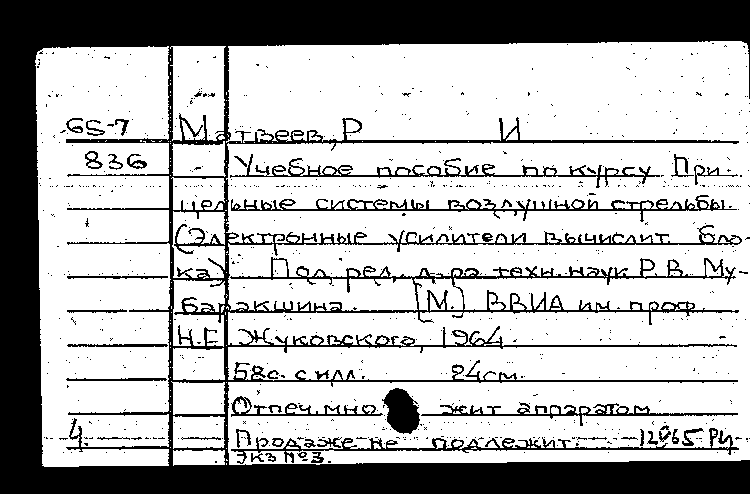 65-7 Матвеев, Р И
836 - Учебное пособие по курсу При-
цельные системы воздушной стрельбы.
(Электронные усилители вычислит. бло-
ка) Под ред. д-ра техн. наук Р. В. Му-
баракшина. [М.] ВВИА им. проф.
Н.Е. Жуковского, 1964.
58с. с илл. 24см.
Отпеч. мно жит аппаратом
4. Продаже не подлежит.
Экз №3.